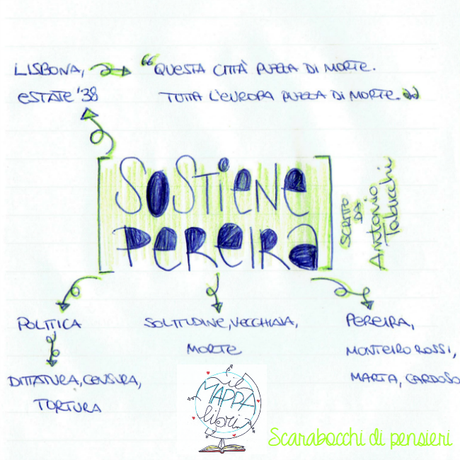 LISBONA, "QUESTA CITTÀ PUZZA DI MORTE.
ESTATE '38 TUTTA L'EUROPA PUZZA DI MORTE."
SOSTIENE
PEREIRA
SCRITTO DA
Antonio
Tabucchi
POLITICA
DITTATURA, CENSURA,
TORTURA
SOLITUDINE, VECCHIAIA,
MORTE
PEREIRA,
MONTEIRO ROSSI,
MARTA, CARDOSO
il
MAPPA
libri
Scarabocchi di pensieri